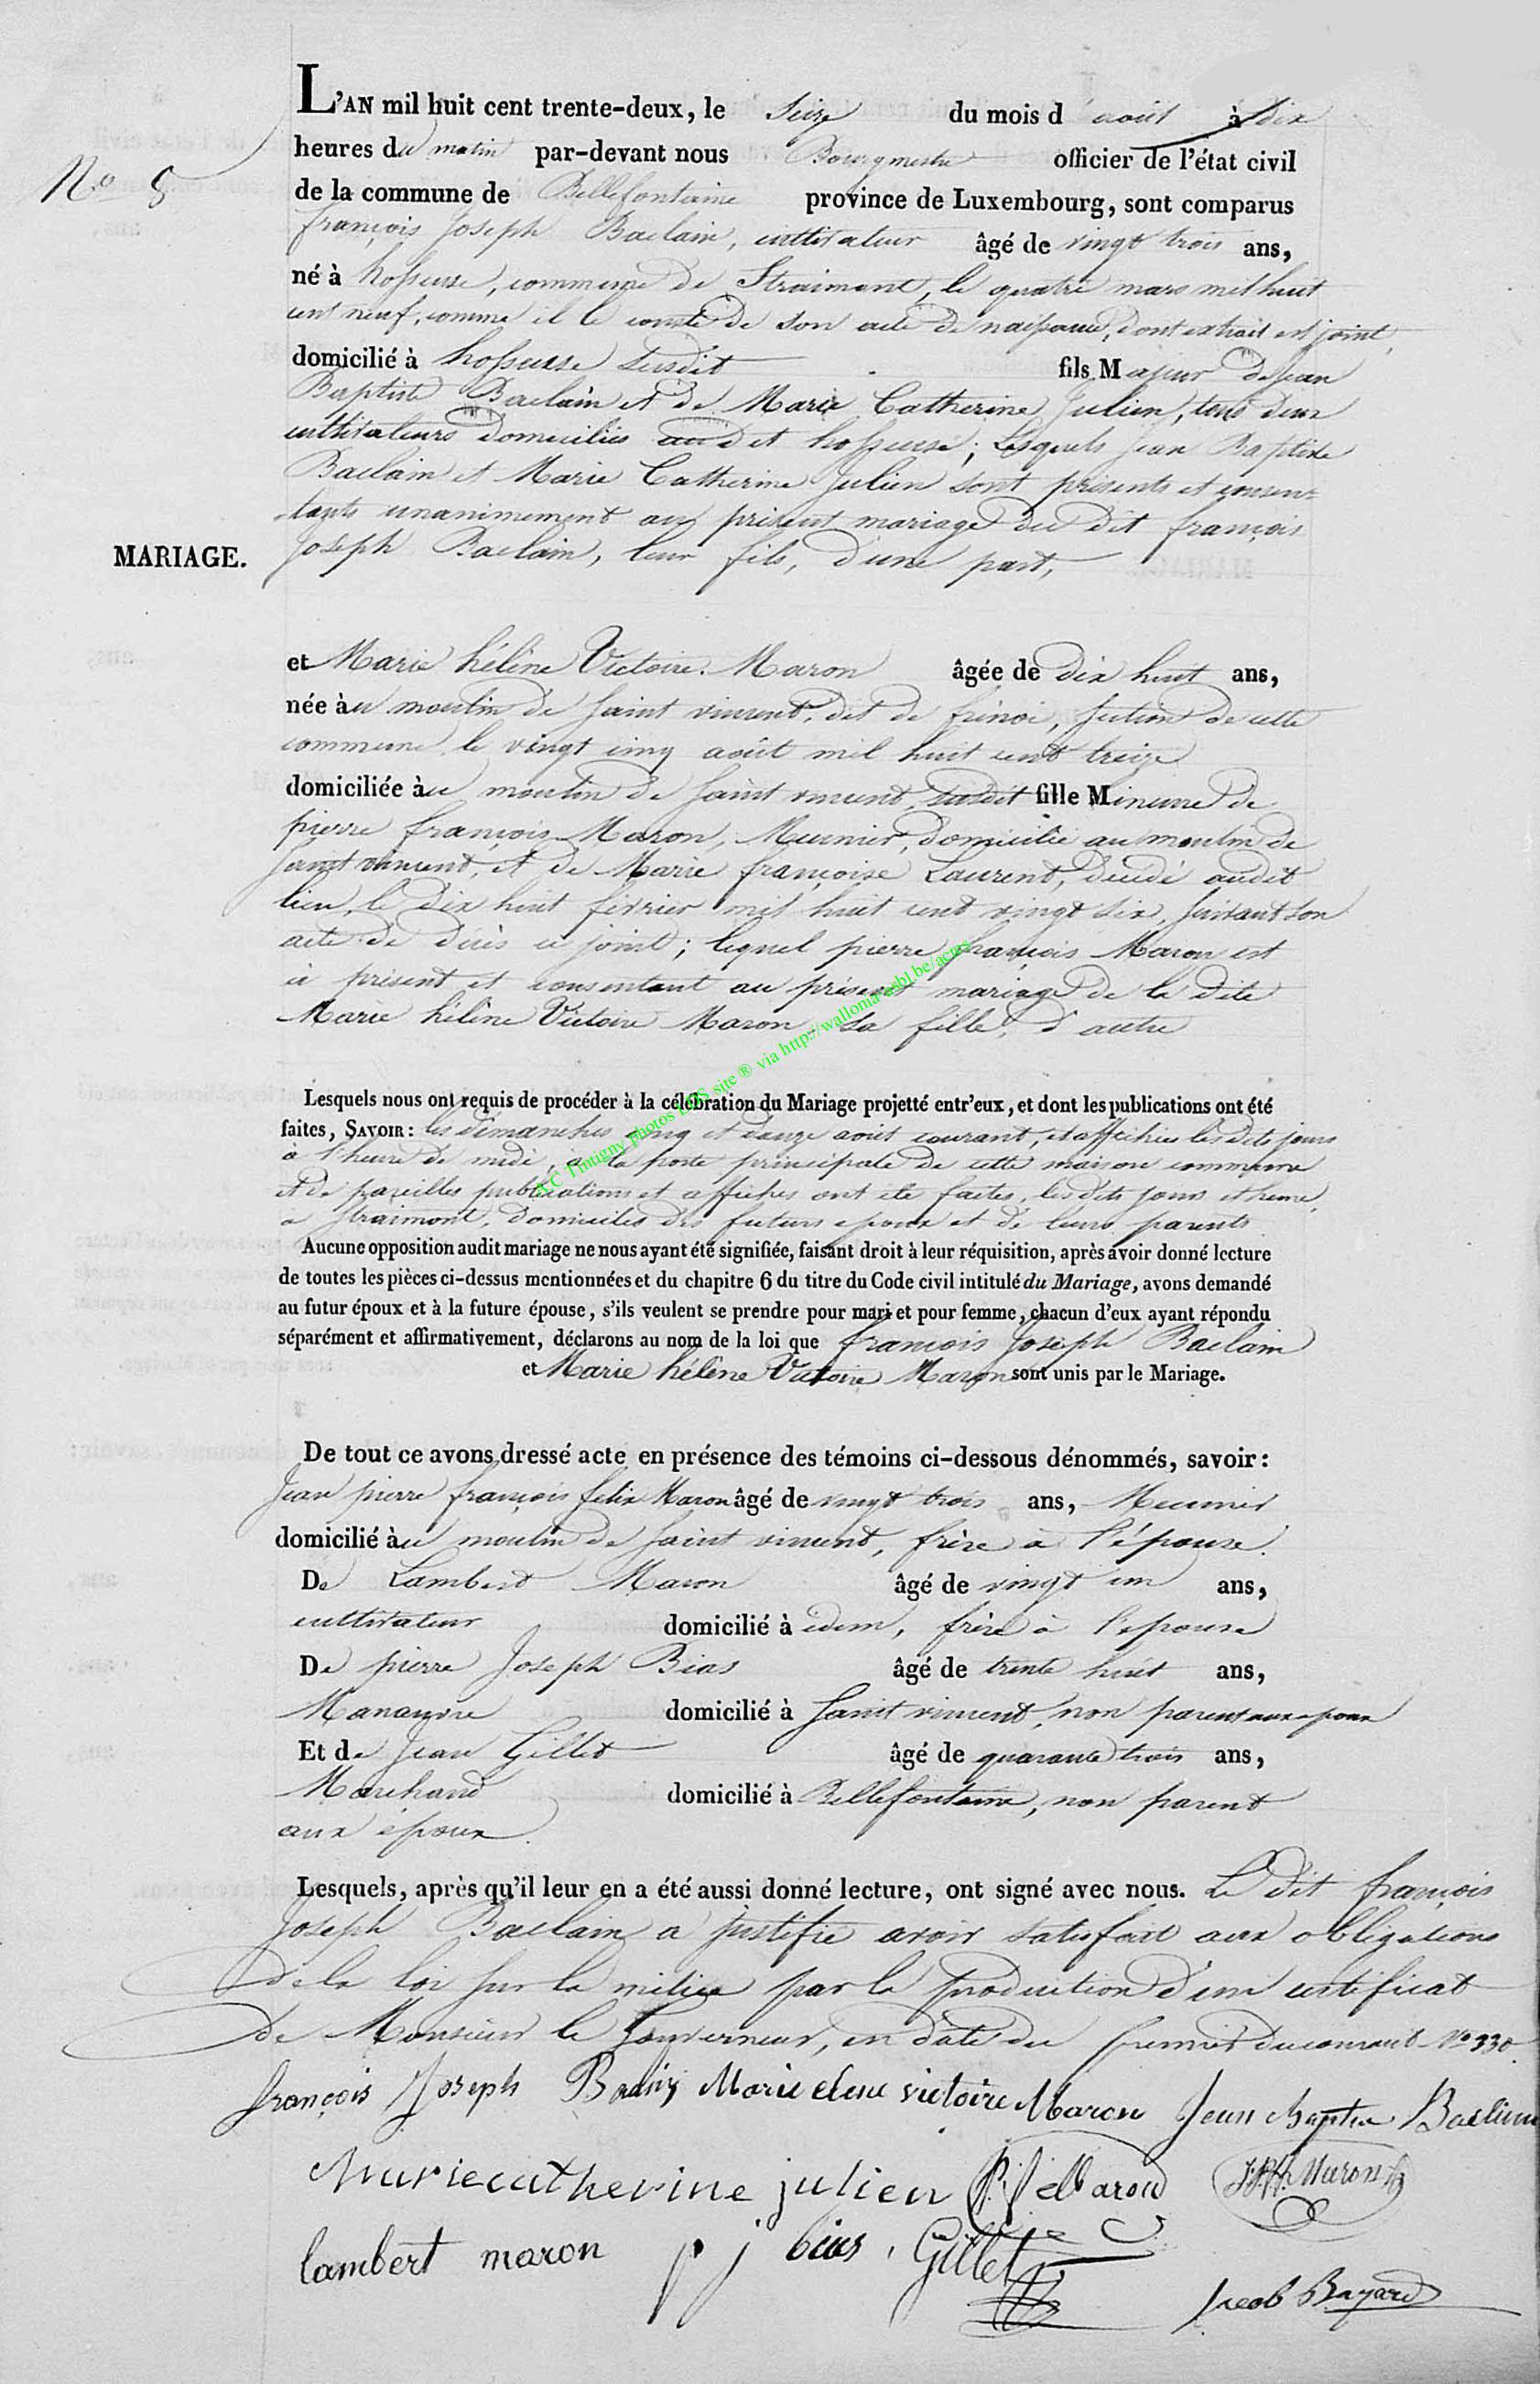 L'AN mil huit cent trente-deux, le Seize du mois d'août à dix
heures du matin par-devant nous Bourgmestre officier de l'état civil
N.o 8
de la commune de Bellefontaine province de Luxembourg, sont comparus
françois Joseph Baclain, cultivateur âgé de vingt trois ans,
né à hosseuse, commune de Straimont, le quatre mars mil huit
cent neuf, comme il le conste de son acte de naissance, dont extrait est joint,
domicilié à hosseusse susdit fils Majeur de jean
Baptiste Baclain et de Marie Catherine Julien, tous deux
cultivateurs domiciliés au dit hosseuse; Lesquels jean Baptiste
Baclain et Marie Catherine Julien sont présents et consen-
tants unanimement au présent mariage du dit françois
Joseph Baclain, leur fils, d'une part,
MARIAGE.
et Marie hélène Victoire Maron âgée de dix huit ans,
née au moulin de Saint vincent, dit de frénoi, section de cette
commune le vingt cinq août mil huit cent treize
domiciliée au moulin de Saint vincent, susdit fille Mineure de
pierre françois Maron, Meunier, domicilié au moulin de
Saint vincent, et de Marie françoise Laurent, décédé audit
lieu, le dix huit février mil huit cent vingt six, suivant son
acte de décès ci joint; lequel pierre françois Maron est
ici présent et consentant au présent mariage de la dite
Marie hélène Victoire Maron sa fille, d'autre
Lesquels nous ont requis de procéder à la célébration du Mariage projetté entr'eux, et dont les publications ont été
faites, SAVOIR: les dimanches cinq et douze août courant, et affichées lesdits jours
à l'heure de midi, à la porte principale de cette maison commune
et de pareilles publications et affiches ont été faites, lesdits jours et heure,
à Straimont, domiciles des futurs epoux et de leurs parents
A.C Tintigny photos LDS site ® via http://wallonia-asbl.be/actes
Aucune opposition audit mariage ne nous ayant été signifiée, faisant droit à leur réquisition, après avoir donné lecture
de toutes les pièces ci-dessus mentionnées et du chapitre 6 du titre du Code civil intitulé du Mariage, avons demandé
au futur époux et à la future épouse, s'ils veulent se prendre pour mari et pour femme, chacun d'eux ayant répondu
séparément et affirmativement, déclarons au nom de la loi que françois Joseph Baclain
et Marie hélène Victoire Maron sont unis par le Mariage.
De tout ce avons dressé acte en présence des témoins ci-dessous dénommés, savoir:
Jean pierre françois felix Maron âgé de vingt trois ans, Meunier
domicilié au moulin de Saint vincent, frère à l'épouse.
De Lambert Maron âgé de vingt un ans,
cultivateur domicilié à idem, frère à l'epouse
De pierre Joseph Bias âgé de trente huit ans,
Manœuvre domicilié à Saint vincent, non parent aux epoux
Et de Jean Gillet âgé de quarante trois ans,
Marchand domicilié à Bellefontaine, non parent
aux epoux.
Lesquels, après qu'il leur en a été aussi donné lecture, ont signé avec nous. Le dit françois
Joseph Baclain a justifié avoir satisfait aux obligations
de la loi sur la milice par la production d'un certificat
de Monsieur le Gouverneur, en date du premier du courant No 330.
françois Joseph Marie elene victoire Maron Jean baptiste
Marie catherine julien P. f Maron Maron
lambert maron p j bias. Gillet
Jacob Bayard